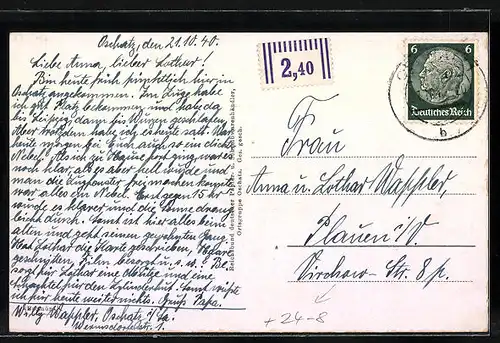 Oschatz, den 21.10.40.
Liebe Anna, lieber Lothar!
Bin heute früh pünktlich hier in
Oschatz angekommen. Im Zuge habe
ich gut Platz bekommen und hab da
bis Leipzig, dann bis Wurzen geschlafen.
Aber trotzdem habe ich es heute satt. War
heute morgen bei Euch auch so ein dicker
Nebel? Als ich zu Hause fort ging war es
noch klar, als es aber hell wurde und
man die Luftfenster frei machen konnte
war alles ein Nebel. Erst gegen 15 hr
wurde es klarer und die Sonne drang
leicht durch. Sonst ist hier alles beim
alten und geht seinen gewohnten Gang.
Hat Lothar die Karte geschrieben,
Film besorgt u.s.w.? Be-
sorgt für Lothar eine Mütze und eine
Schachtel für den Zylinderhut. Sonst wüßte
ich für heute weiter nichts. Gruß Papa.
Willy Wappler, Oschatz i/Sa.
Wermsdorferstr. 1.
Reichsbund deutscher Papier- u. Schreibwarenhändler,
Ortsgruppe Oschatz. Ges. gesch.
2,40
6 6
Deutsches Reich
b
Frau
Anna u. Lothar Wappler,
Plauen i/V.
Virchow-Str. 8p.
+24-8